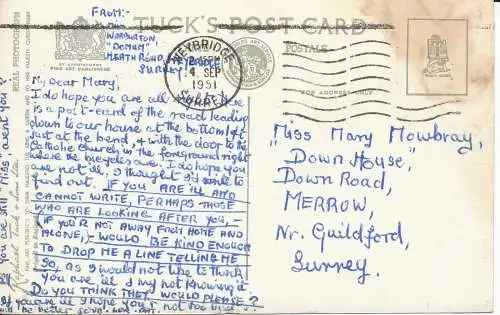 FROM:-
Miss
WARBURTON,
"DOMUM"
HEATH ROAD, WEYBRIDGE
SURREY.
TUCK'S POST CARD
REAL PHOTOGRAPH
BY APPOINTMENT
FINE ART PUBLISHERS
POSTALE
FOR ADDRESS ONLY
WEYBRIDGE
4 SEP
1951
SURREY
My Dear Mary,
I do hope you are all right. Here
is a post-card of the road leading
down to our house at the bottom left
just at the bend, with the door to the
Catholic Church in the foreground right
where the bicycles are. I do hope you
are not ill, I thought I'd write to
find out. IF YOU ARE ILL AND
CANNOT WRITE, PERHAPS THOSE
WHO ARE LOOKING AFTER YOU,-
(IF YOU'R NOT AWAY FROM HOME AND
ALONE,)- WOULD BE KIND ENOUGH
TO DROP ME A LINE TELLING ME
SO, as I would not like to think
you are ill, & my not knowing it.
DO YOU THINK THEY WOULD PLEASE?
If you are ill I hope you're not too bad &
will be better soon.
You are still "Miss", aren't you?
Raphael Tuck & Sons Ltd.
"Miss Mary Mowbray,
"Down House",
Down Road,
MERROW,
Nr. Guildford,
Surrey.